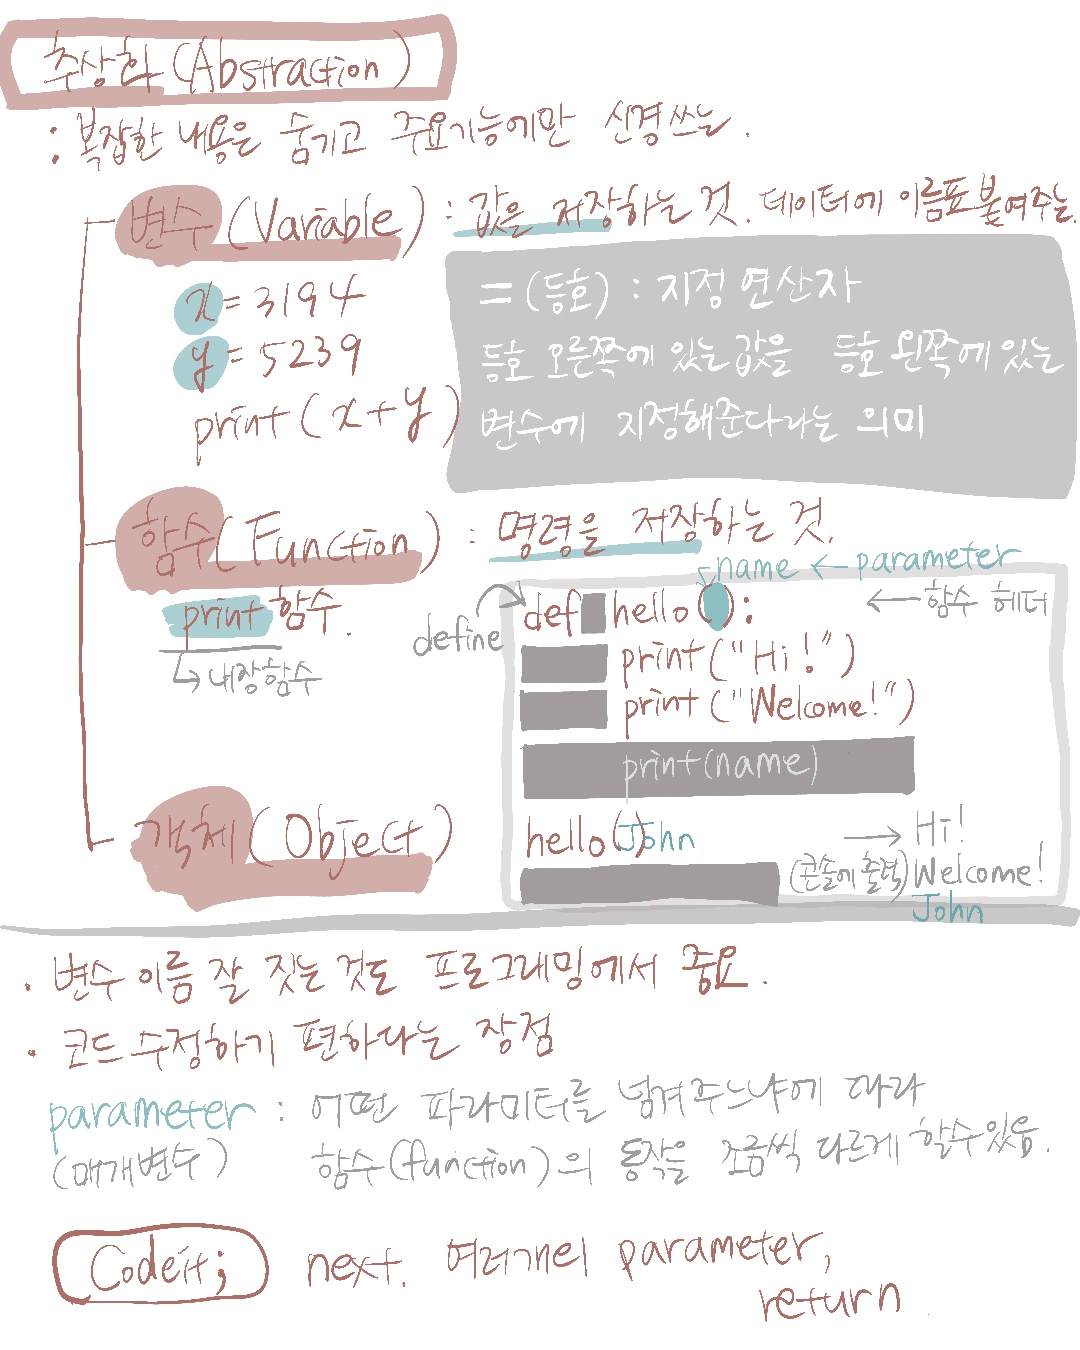 추상화 (Abstraction)
: 복잡한 내용은 숨기고 주요기능에만 신경쓰는.
변수 (Variable) : 값을 저장하는 것. 데이터에 이름표 붙여주는.
x = 3194
y = 5239
print (x+y)
= (등호) : 지정 연산자
등호 오른쪽에 있는 값을 등호 왼쪽에 있는
변수에 지정해준다라는 의미
함수 (Function) : 명령을 저장하는 것.
print 함수.
→ 내장함수
name ← parameter
define
def hello ( ) :
← 함수 헤더
print ("Hi!")
print ("Welcome!")
print(name)
hello( ) John
→ Hi!
(콘솔에 출력) Welcome!
John
객체 (Object)
· 변수 이름 잘 짓는 것도 프로그래밍에서 중요.
· 코드 수정하기 편하다는 장점
parameter : 어떤 파라미터를 넘겨주느냐에 따라
(매개변수) 함수(function)의 동작을 조금씩 다르게 할수있음.
Codeit; next. 여러개의 parameter,
return.